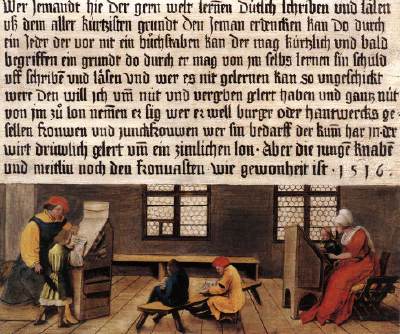 wer jemandt hie der gern welt lernen dütsch schriben und läsen
uß dem aller kürtzisten grundt den jeman erdencken kan do durch
ein jeder der vor nit ein büchstaben kan der mag kürtzlich und bald
begriffen ein grundt do durch er mag von jm selbs lernen sin schuld
uff schribẽ und läsen und wer es nit gelernen kan so ungeschickt
were den will ich vm̃ nüt und vergeben glert haben und gantz nüt
von jm zů lon nemen er sig wer er well burger oder hantwercks ge-
sellen frouwen und junckfrouwen wer sin bedarff der kum̃ har jn der
wirt drüwlich glert vm̃ ein zimlichen lon · Aber die jungen knabẽ
und meitlin noch den fronuasten wie gewonheit ist · 1516 ·